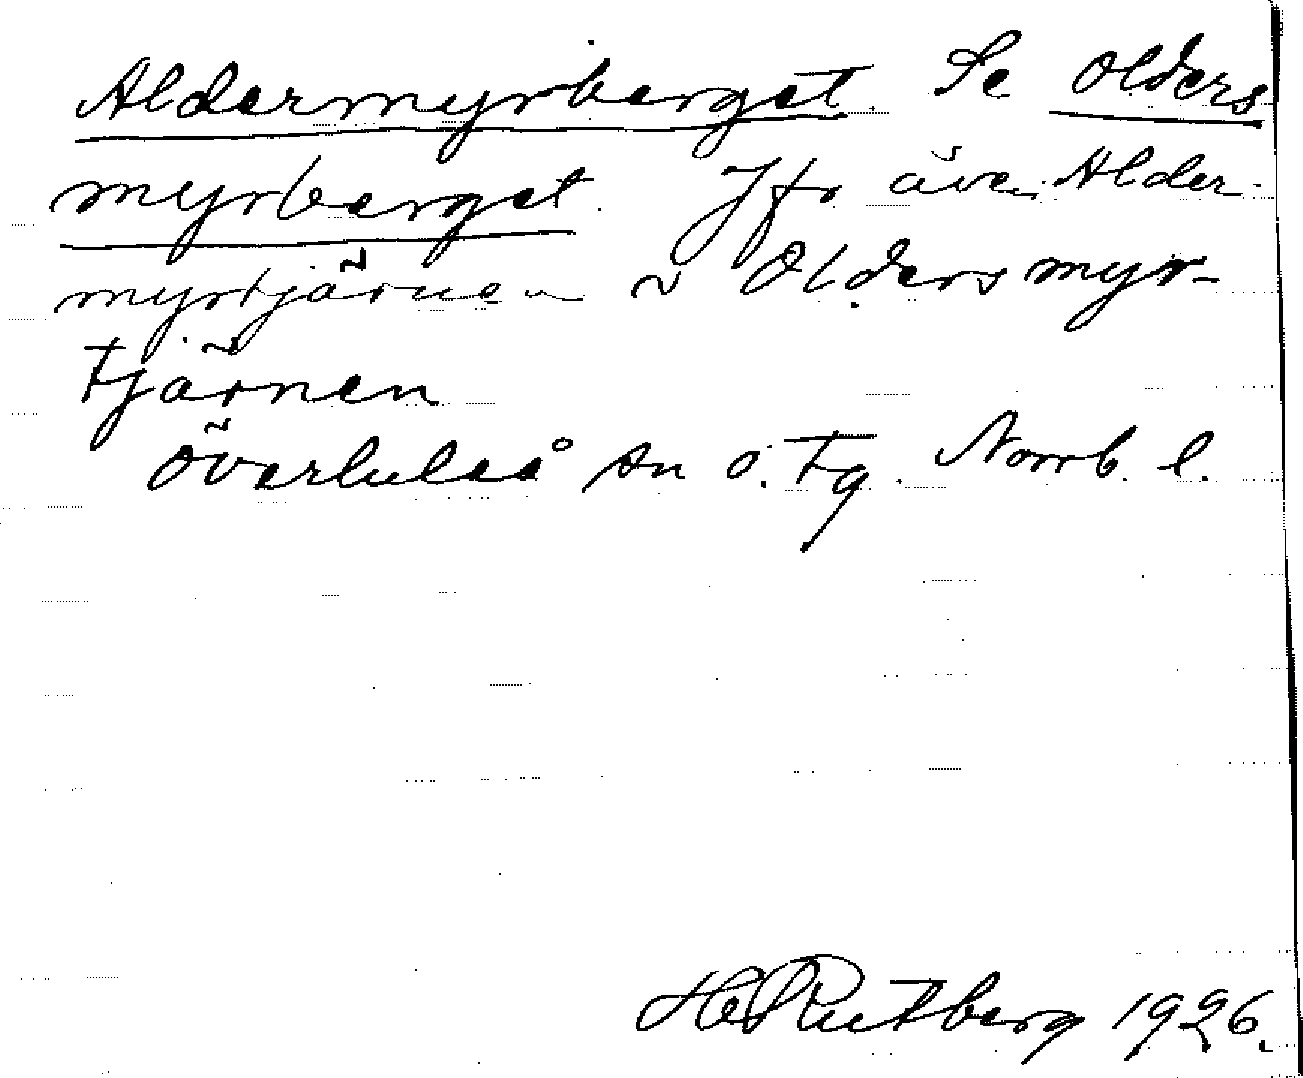 Aldermyrberget Se Olders
myrberget. Jfr även Alder-
myrtjärnen o Oldersmyr-
tjärnen
Överluleå sn ö. tg. Norrb. l.
H Rutberg 1926.